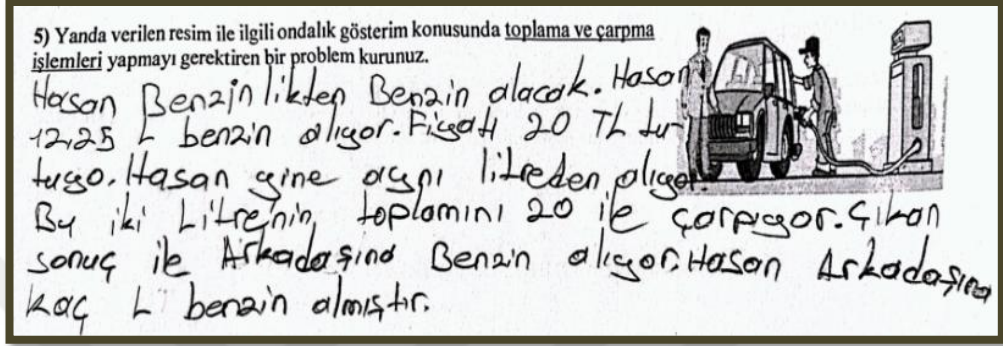 5) Yanda verilen resim ile ilgili ondalık gösterim konusunda toplama ve çarpma
işlemleri yapmayı gerektiren bir problem kurunuz.
Hasan Benzinlikten Benzin alacak. Hasan
12,25 L benzin alıyor. Fiyatı 20 TL tu-
tuyo. Hasan yine aynı litreden alıyor.
Bu iki Litrenin toplamını 20 ile çarpıyor. Çıkan
sonuç ile Arkadaşına Benzin alıyor. Hasan Arkadaşına
kaç L benzin almıştır.